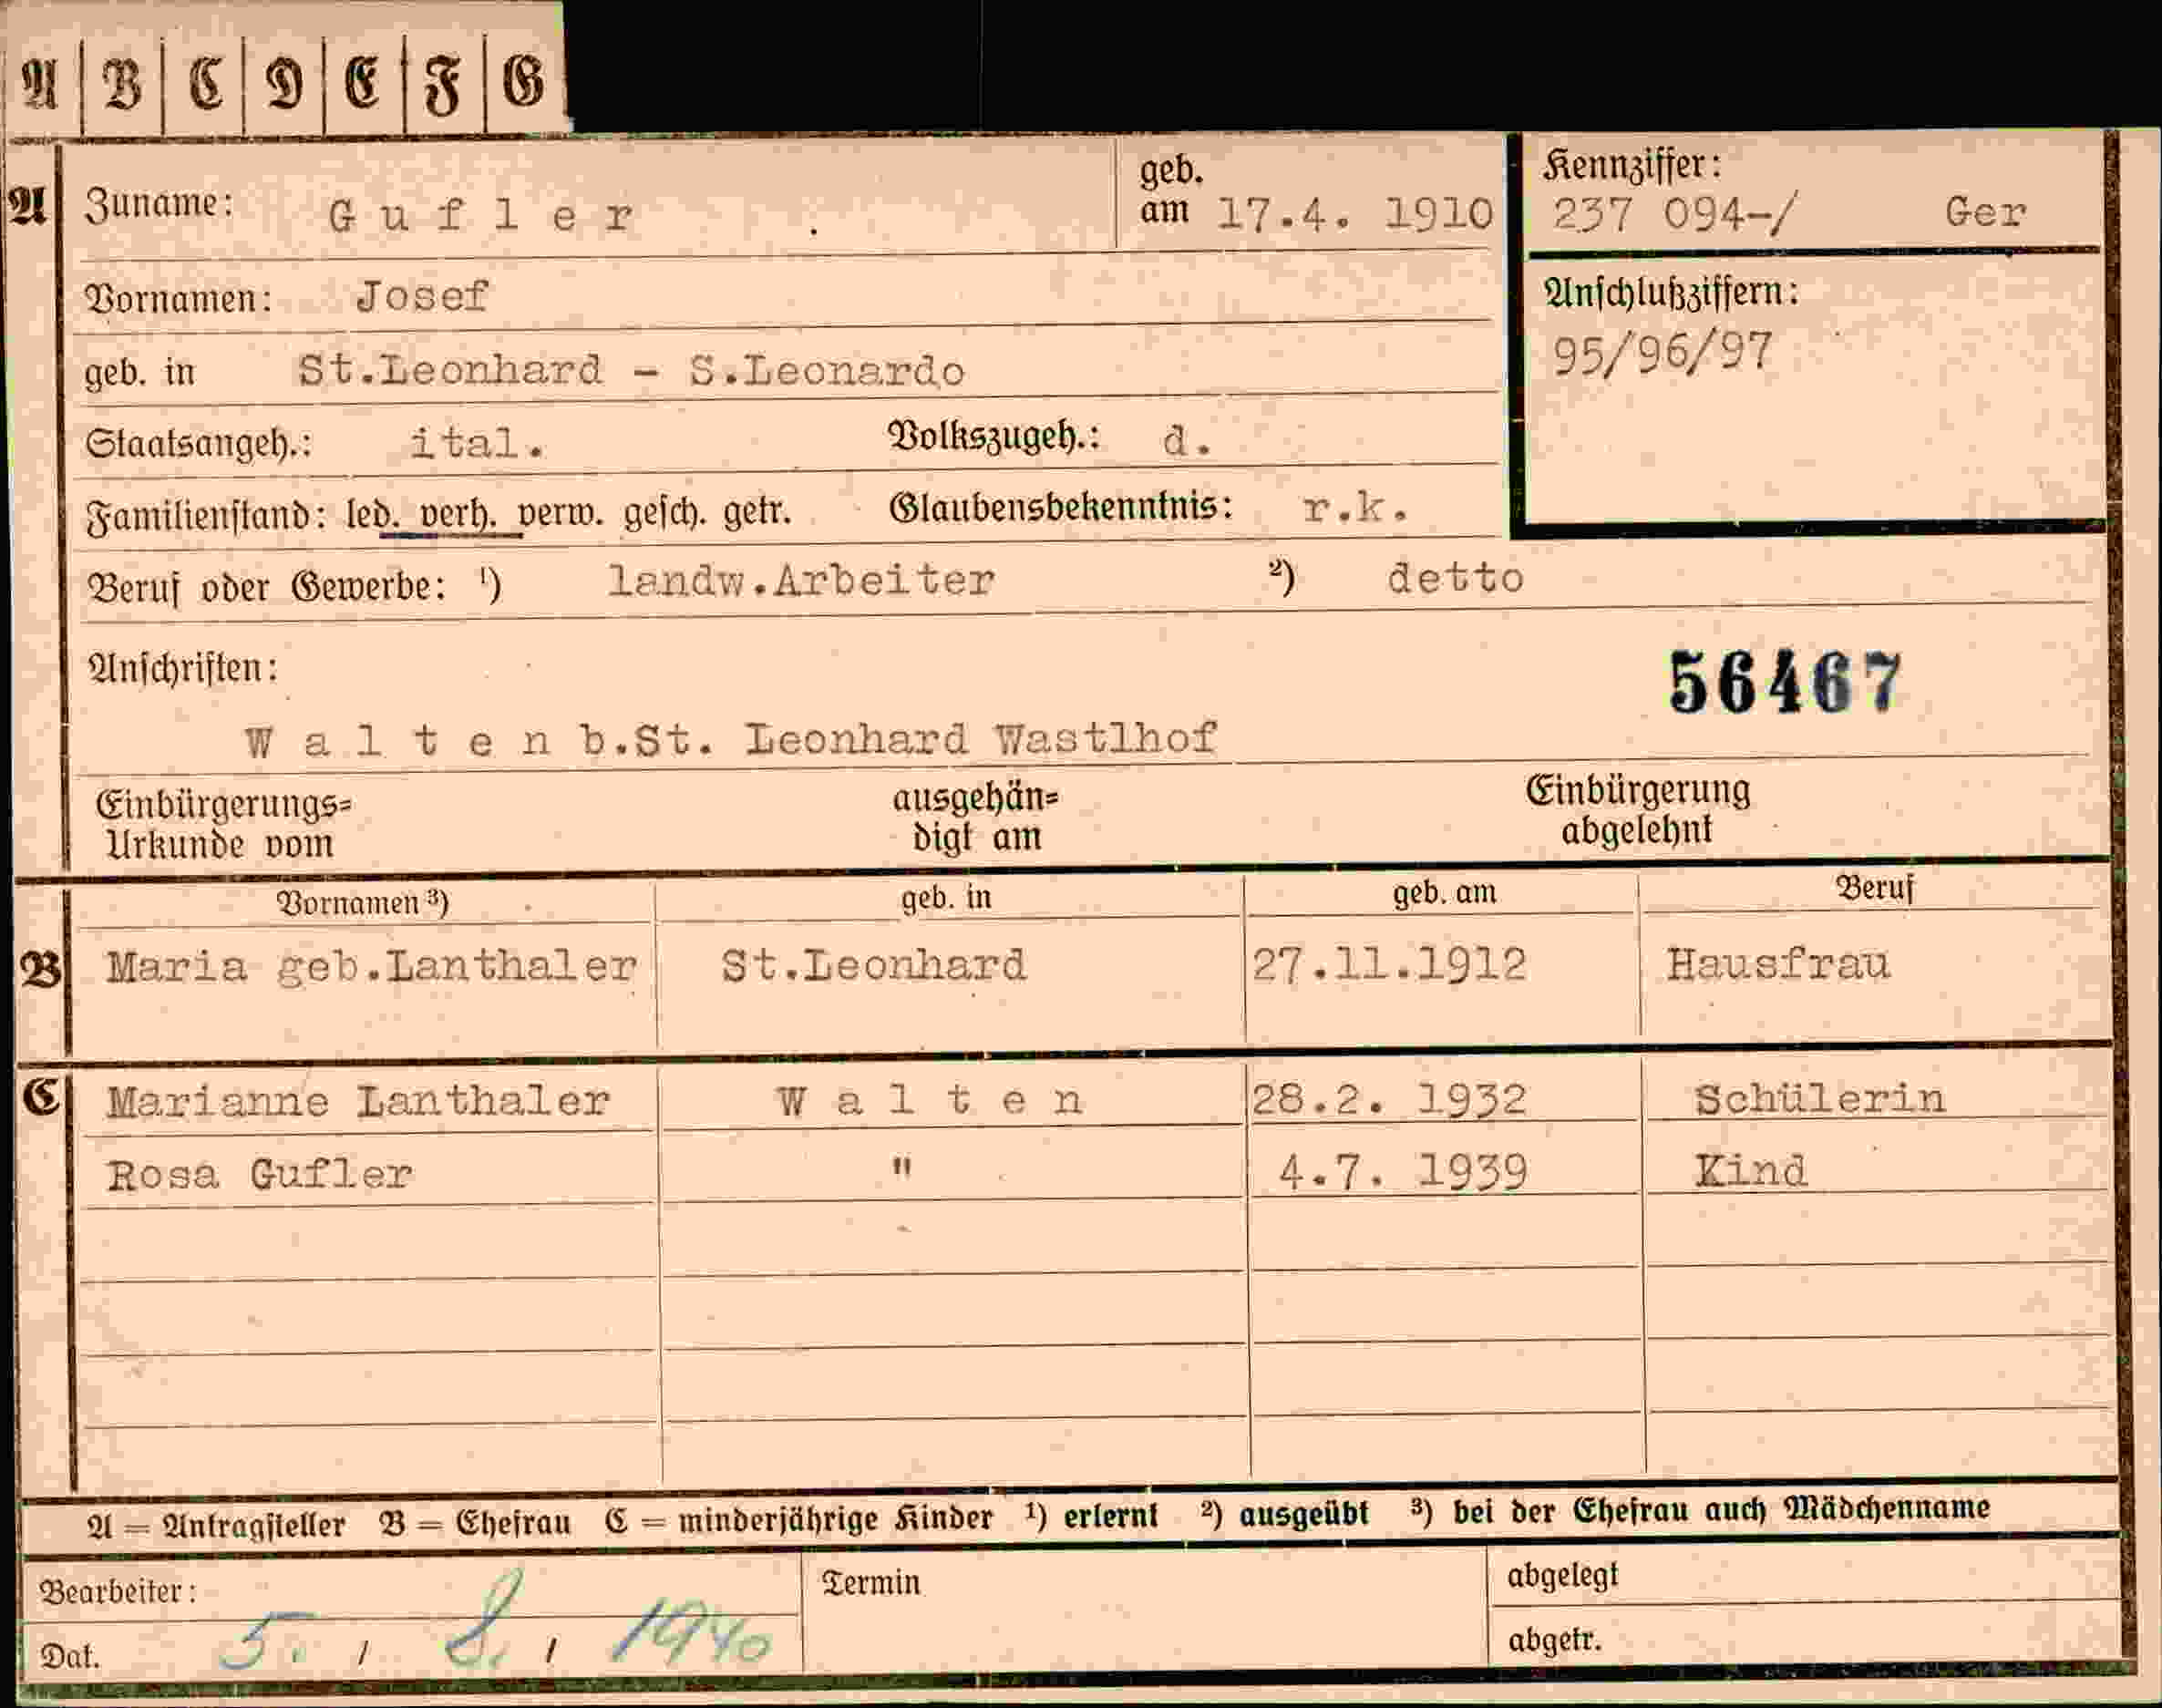 A B C D E F G
A Zuname: Gufler geb. am 17.4. 1910
Kennziffer:
237 094-/ Ger
Vornamen: Josef
Anschlußziffern:
95/96/97
geb. in St.Leonhard - S.Leonardo
Staatsangeh.: ital. Volkszugeh.: d.
Familienstand: led. verh. verw. gesch. getr. Glaubensbekenntnis: r.k.
Beruf oder Gewerbe: ¹) landw.Arbeiter ²) detto
Anschriften:
56467
Walten b.St. Leonhard Wastlhof
Einbürgerungs= ausgehän= Einbürgerung
Urkunde vom digt am abgelehnt
Vornamen ³) geb. in geb. am Beruf
B Maria geb.Lanthaler St.Leonhard 27.11.1912 Hausfrau
C Marianne Lanthaler Walten 28.2. 1932 Schülerin
Rosa Gufler " 4.7. 1939 Kind
A = Antragsteller B = Ehefrau C = minderjährige Kinder ¹) erlernt ²) ausgeübt ³) bei der Ehefrau auch Mädchenname
Bearbeiter: Termin abgelegt
Dat. 5. / 8. / 1940 abgetr.